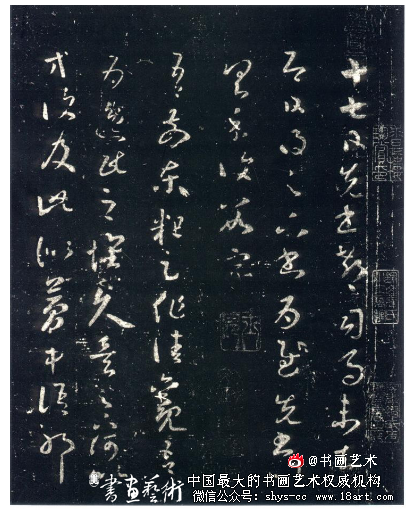 十七日先書郗司馬未去
即日得足下書為慰先書以
具示復數字
吾前東粗足作佳觀吾
為逸民之懷久矣足下何以
方復及此似夢中語耶
@书画艺术
書畫藝術
中国最大的书画艺术权威机构
微信公众号：shys-cc www.18art.com